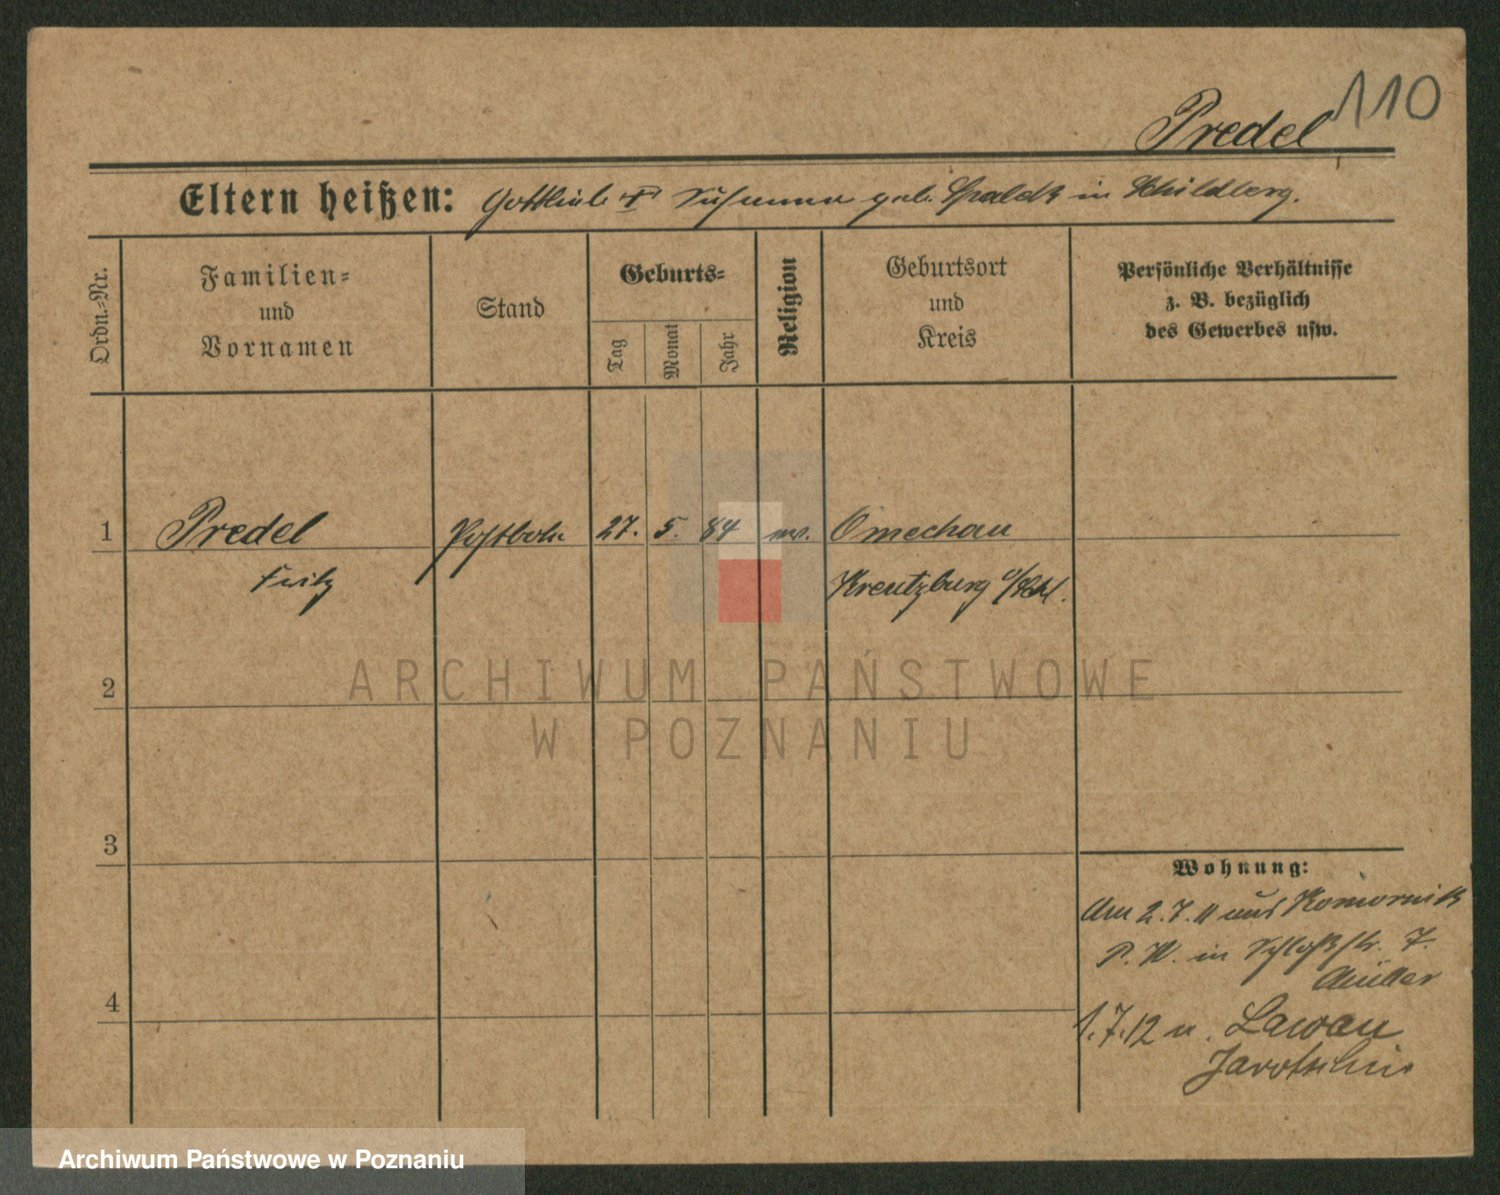 110
Predel
Eltern heißen: Gottlieb u. Susanna geb. Spaldt in Schildberg.
Ordn.-Nr.
Familien-
und
Vornamen
Stand
Geburts-
Tag
Monat
Jahr
Religion
Geburtsort
und
Kreis
Persönliche Verhältnisse
z. B. bezüglich
des Gewerbes usw.
1 Predel Postbote 27. 5. 84 ev. Omechau
Fritz Kreutzburg o/Schl.
2
ARCHIWUM PAŃSTWOWE
W POZNANIU
3
Wohnung:
Am 2.7.11 aus Komornik
P. W. in Schloßstr. 7.
Müller
4
1.7.12 n. Lawau
Jarotschin
Archiwum Państwowe w Poznaniu